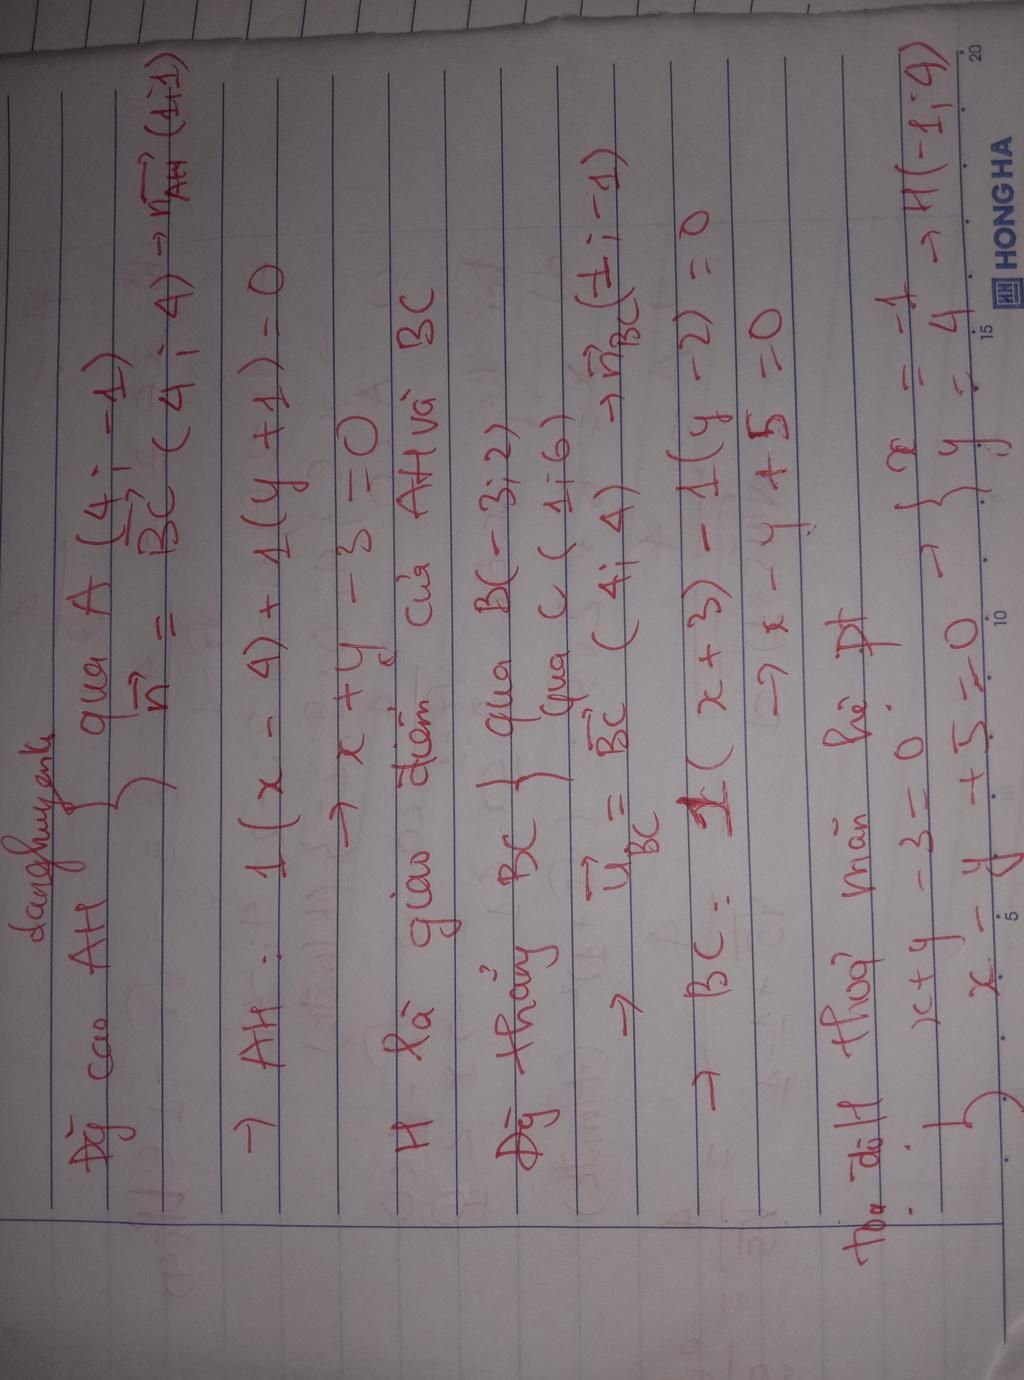 danghuyenk
Đg cao AH { qua A (4; -1)
n⃗ = BC⃗ (4; 4) → n⃗AH (1;1)
→ AH : 1(x - 4) + 1(y + 1) = 0
→ x + y - 3 = 0
H là giao điểm của AH và BC
Đg thẳng BC { qua B(-3; 2)
qua C (1; 6)
→ u⃗BC = BC⃗ (4; 4) → n⃗BC (1; -1)
→ BC : 1(x + 3) - 1(y - 2) = 0
→ x - y + 5 = 0
Toạ độ H thoả mãn hệ pt
: { x + y - 3 = 0 → { x = -1
x - y + 5 = 0 y = 4 → H(-1; 4)
5 10 15 20
HH HONG HA